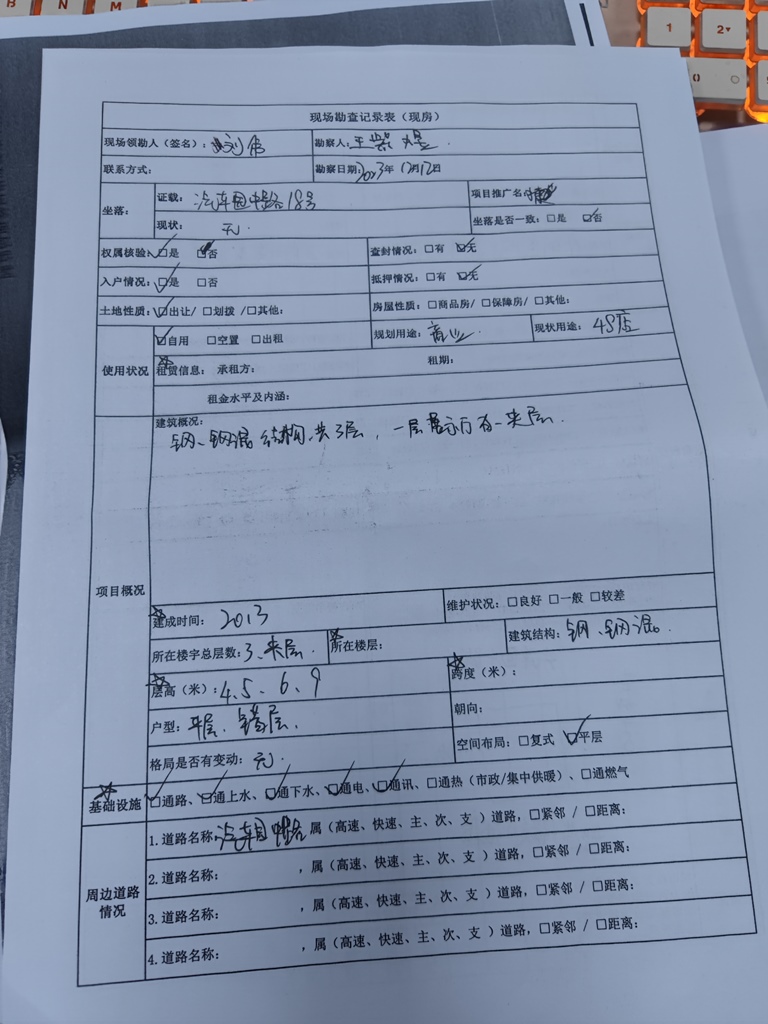 B N M
1 2
现场勘查记录表（现房）
现场领勘人（签名）： 勘察人：
联系方式： 勘察日期：2023年12月12日
坐落： 证载：汽车园中路18号 项目推广名：
现状：无. 坐落是否一致：□是 ☑否
权属核验：☑是 □否 查封情况：□有 ☑无
入户情况：☑是 □否 抵押情况：□有 ☑无
土地性质：☑出让/□划拨/□其他： 房屋性质：□商品房/□保障房/□其他：
使用状况 ☑自用 □空置 □出租 规划用途：商业. 现状用途：4S店
租赁信息：承租方： 租期：
租金水平及内涵：
项目概况 建筑概况：
钢、钢混结构，共3层，一层展示厅有一夹层.
建成时间：2013 维护状况：□良好 □一般 □较差
所在楼宇总层数：3、夹层. 所在楼层： 建筑结构：钢、钢混.
层高（米）：4.5、6、9 跨度（米）：
户型：平层、错层. 朝向：
格局是否有变动：无. 空间布局：□复式 ☑平层
基础设施 ☑通路、☑通上水、☑通下水、☑通电、☑通讯、□通热（市政/集中供暖）、□通燃气
周边道路情况 1.道路名称：汽车园中路，属（高速、快速、主、次、支 ）道路，□紧邻 / □距离：
2.道路名称： ，属（高速、快速、主、次、支 ）道路，□紧邻 / □距离：
3.道路名称： ，属（高速、快速、主、次、支 ）道路，□紧邻 / □距离：
4.道路名称： ，属（高速、快速、主、次、支 ）道路，□紧邻 / □距离：